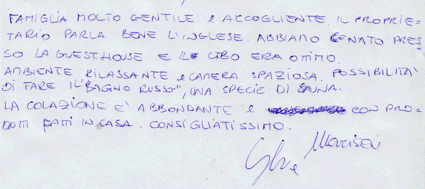 FAMIGLIA MOLTO GENTILE E ACCOGLIENTE. IL PROPRIE-
TARIO PARLA BENE L'INGLESE. ABBIAMO CENATO PRES-
SO LA GUESTHOUSE E IL CIBO ERA OTTIMO.
AMBIENTE RILASSANTE E CAMERA SPAZIOSA. POSSIBILITÀ
DI FARE IL "BAGNO RUSSO", UNA SPECIE DI SAUNA.
LA COLAZIONE E' ABBONDANTE E CON PRO-
DOTTI FATTI IN CASA. CONSIGLIATISSIMO.